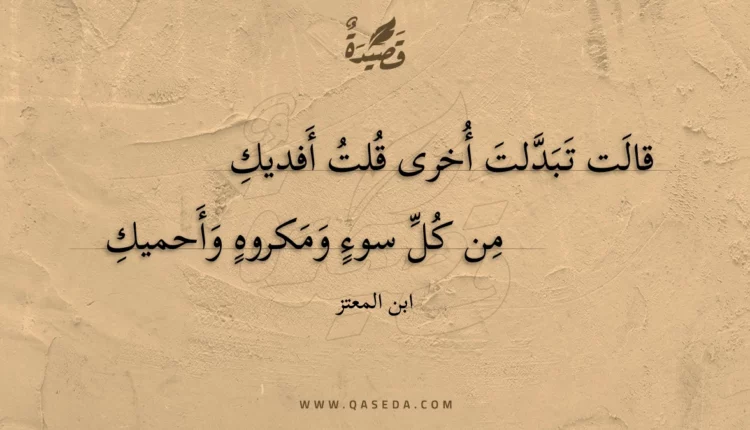 قَصِيدَةٌ
قالَت تَبَدَّلتَ أُخرى قُلتُ أَفديكِ
مِن كُلِّ سوءٍ وَمَكروهٍ وَأَحميكِ
ابن المعتز
WWW.QASEDA.COM